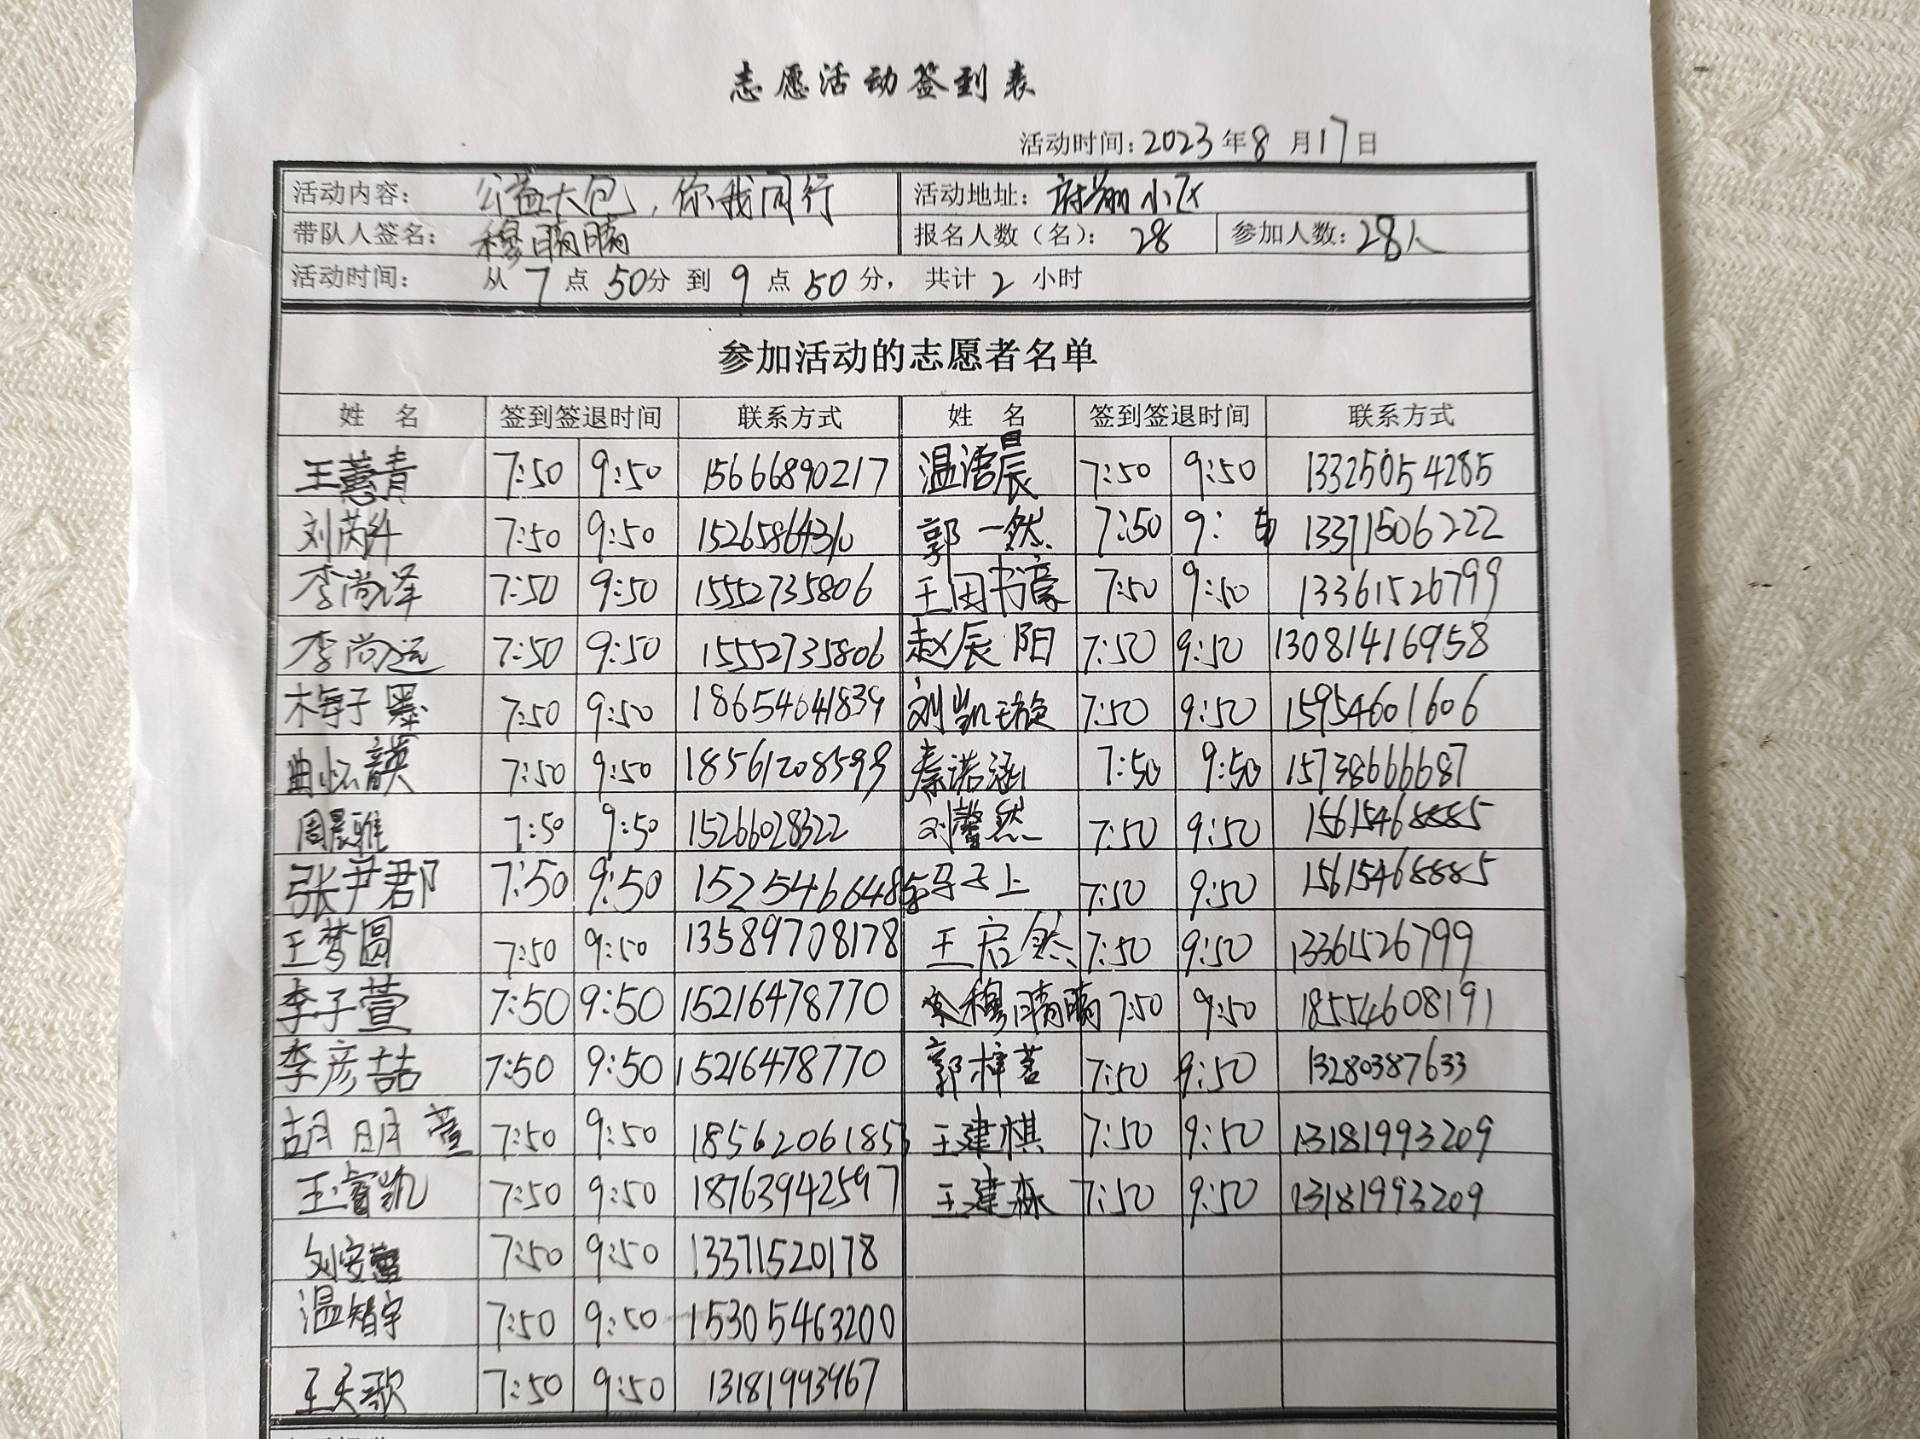 志愿活动签到表
活动时间:2023年8月17日
活动内容: 公益大包,你我同行 活动地址:府翔小区
带队人签名: 穆晴晴 报名人数(名): 28 参加人数:28人
活动时间: 从 7 点 50分 到 9 点 50 分, 共计 2 小时
参加活动的志愿者名单
姓 名 签到签退时间 联系方式 姓 名 签到签退时间 联系方式
王蕙青 7:50 9:50 15666890217 温浩晨 7:50 9:50 13325054285
刘芮 7:50 9:50 郭一然 7:50 9: 13371506222
李尚泽 7:50 9:50 15552735806 王田书豪 7:50 9:50 13361526799
李尚远 7:50 9:50 15552735806 赵辰阳 7:50 9:50 13081416958
梅子墨 7:50 9:50 18654641839 刘凯旋 7:50 9:50 15954601606
曲怀韻 7:50 9:50 18561208599 秦诺涵 7:50 9:50 15738666687
周晨雅 7:50 9:50 15266028322 刘馨然 7:50 9:50 15615468885
张尹郡 7:50 9:50 15254664858 子上 7:50 9:50 15615468885
王梦圆 7:50 9:50 13589708178 王启然 7:50 9:50 13361526799
李子萱 7:50 9:50 15216478770 穆晴晴 7:50 9:50 18554608191
李彦喆 7:50 9:50 15216478770 郭梓茗 7:50 9:50 13280387633
胡明萱 7:50 9:50 18562061853 王建棋 7:50 9:50 13181993209
王睿凯 7:50 9:50 18763942597 王建森 7:50 9:50 13181993209
刘安 7:50 9:50 13371520178
温智宇 7:50 9:50 15305463200
王天歌 7:50 9:50 13181993967